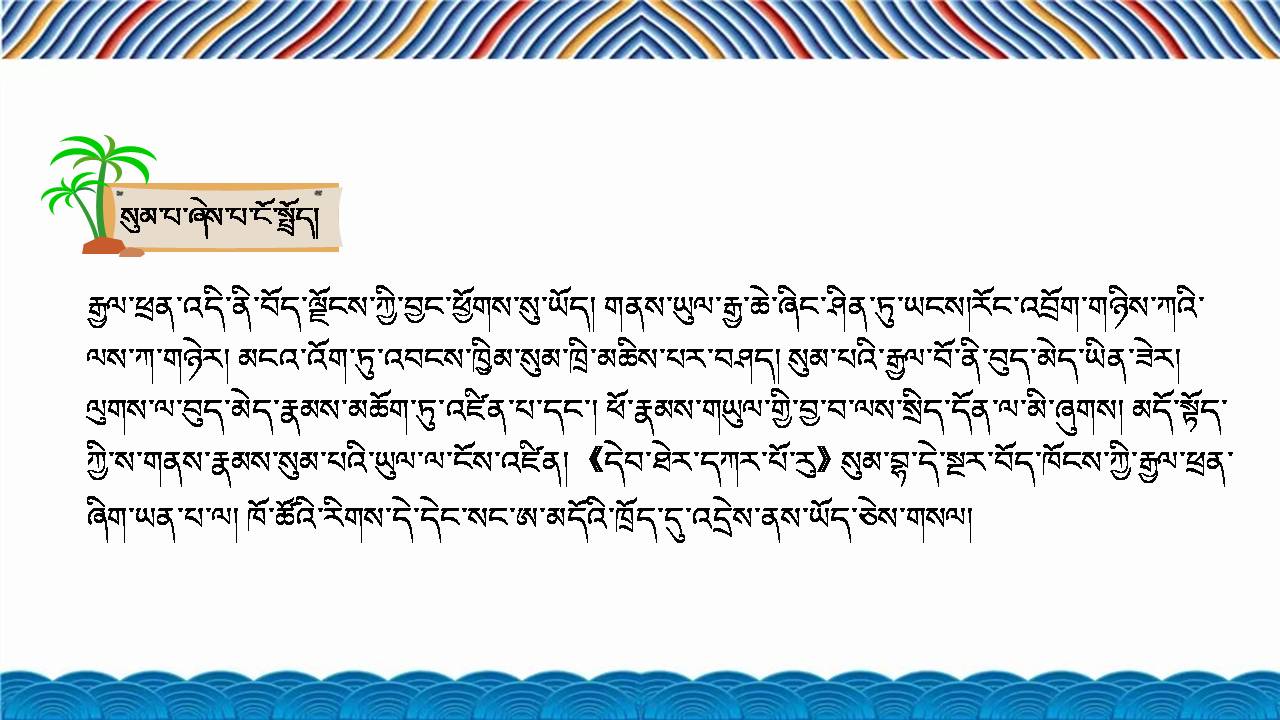 སུམ་པ་ཞེས་པ་ངོ་སྤྲོད།
རྒྱལ་ཕྲན་འདི་ནི་བོད་ལྗོངས་ཀྱི་བྱང་ཕྱོགས་སུ་ཡོད། གནས་ཡུལ་རྒྱ་ཆེ་ཞིང་ཤིན་ཏུ་ཡངས།རོང་འབྲོག་གཉིས་ཀའི་
ལས་ཀ་གཉེར། མངའ་འོག་ཏུ་འབངས་ཁྱིམ་སུམ་ཁྲི་མཆིས་པར་བཤད། སུམ་པའི་རྒྱལ་བོ་ནི་བུད་མེད་ཡིན་ཟེར།
ལུགས་ལ་བུད་མེད་རྣམས་མཆོག་ཏུ་འཛིན་པ་དང་། ཕོ་རྣམས་གཡུལ་གྱི་བྱ་བ་ལས་སྲིད་དོན་ལ་མི་ཞུགས། མདོ་སྟོད་
ཀྱི་ས་གནས་རྣམས་སུམ་པའི་ཡུལ་ལ་ངོས་འཛིན། 《དེབ་ཐེར་དཀར་པོ་རུ》སུམ་བྷ་དེ་སྔར་བོད་ཁོངས་ཀྱི་རྒྱལ་ཕྲན་
ཞིག་ཡན་པ་ལ། ཁོ་ཚོའི་རིགས་དེ་དེང་སང་ཨ་མདོའི་ཁྲོད་དུ་འདྲེས་ནས་ཡོད་ཅེས་གསལ།